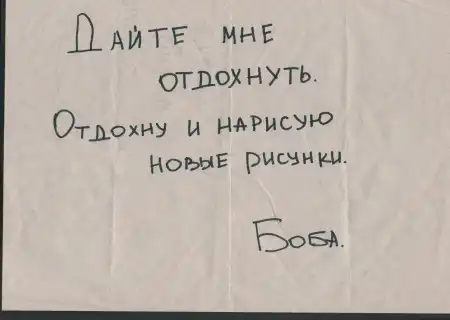 ДАЙТЕ МНЕ
ОТДОХНУТЬ.
ОТДОХНУ И НАРИСУЮ
НОВЫЕ РИСУНКИ.
БОБА.